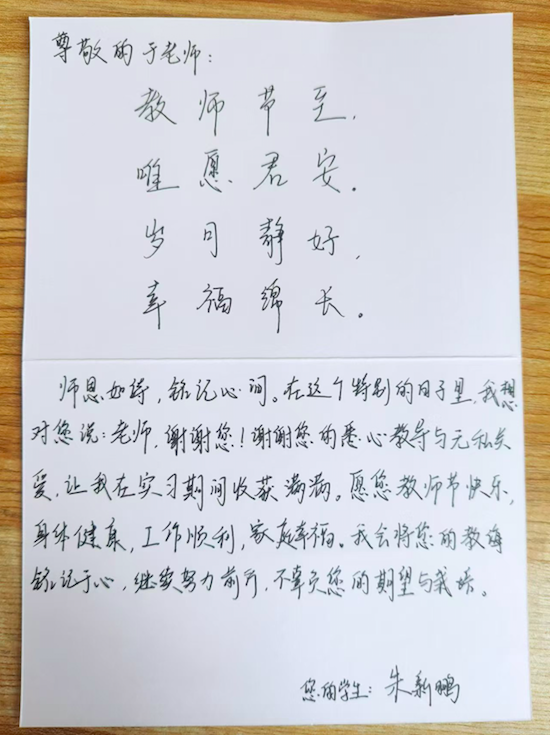 尊敬的于老师:
教师节至,
唯愿君安。
岁月静好,
幸福绵长。
师恩如海,铭记心间。在这个特别的日子里,我想
对您说:老师,谢谢您!谢谢您的悉心教导与无私关
爱,让我在实习期间收获满满。愿您教师节快乐,
身体健康,工作顺利,家庭幸福。我会将您的教诲
铭记于心,继续努力前行,不辜负您的期望与栽培。
您的学生:朱新鹏